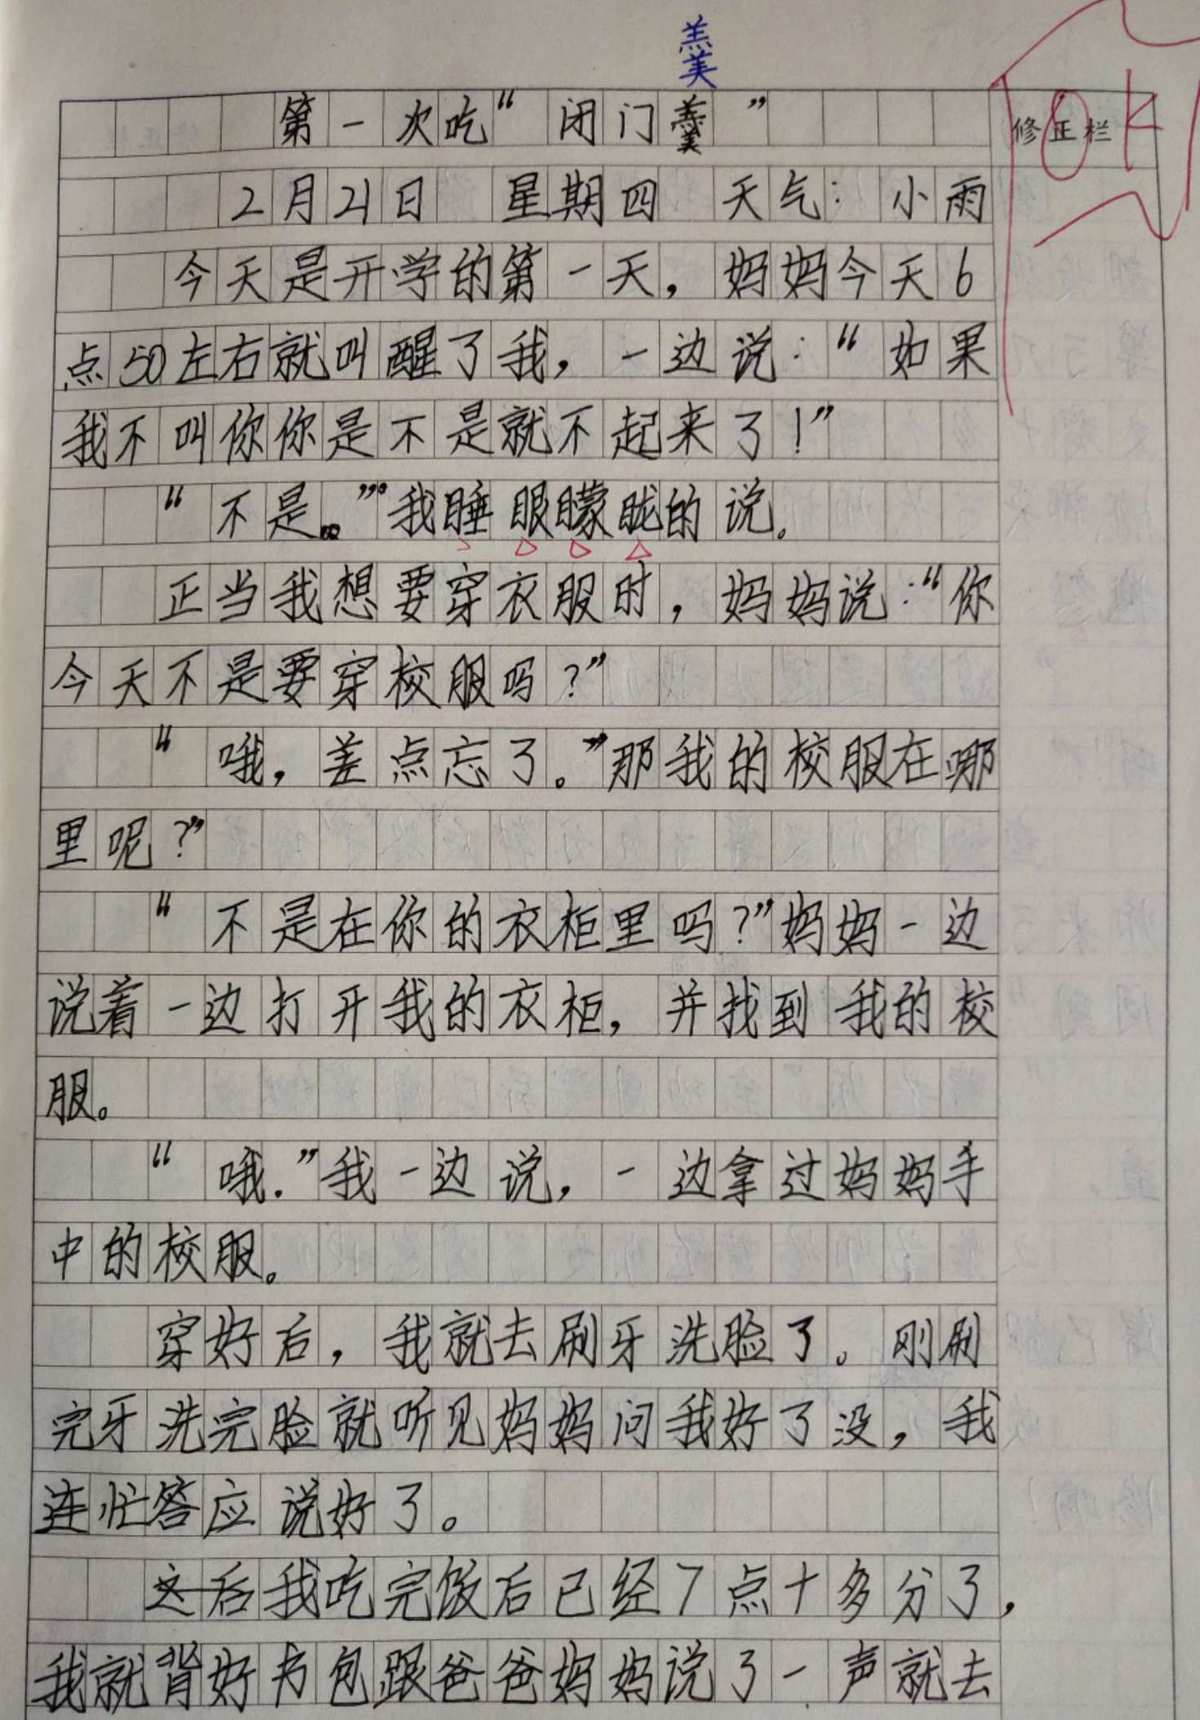 羔
美
第一次吃“闭门羹”
修正栏
2月21日 星期四 天气:小雨
今天是开学的第一天，妈妈今天6
点50左右就叫醒了我，一边说:“如果
我不叫你你是不是就不起来了!”
“不是。”我睡眼朦胧的说。
正当我想要穿衣服时，妈妈说:“你
今天不是要穿校服吗?”
“哦，差点忘了。”那我的校服在哪
里呢?”
“不是在你的衣柜里吗?”妈妈一边
说着一边打开我的衣柜，并找到我的校
服。
“哦.”我一边说，一边拿过妈妈手
中的校服。
穿好后，我就去刷牙洗脸了。刚刷
完牙洗完脸就听见妈妈问我好了没，我
连忙答应说好了。
这后我吃完饭后已经7点十多分了，
我就背好书包跟爸爸妈妈说了一声就去